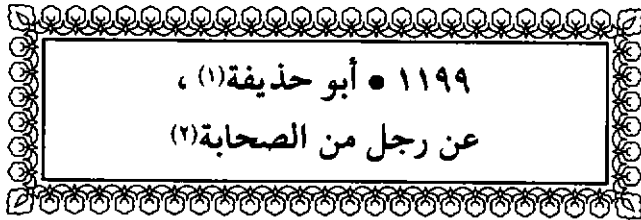 ١١٩٩ • أبو حذيفة(١) ،
عن رجل من الصحابة(٢)